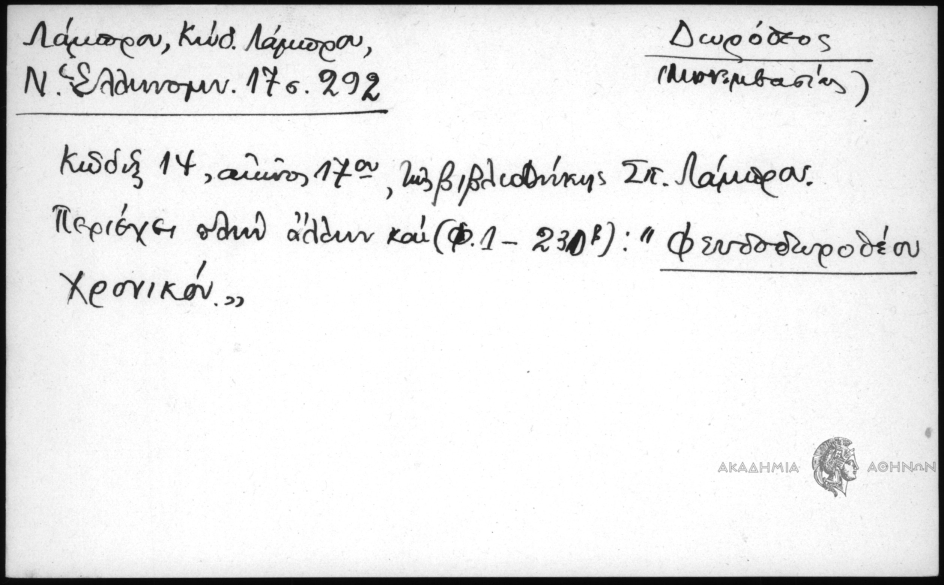 Λάμπρου, Κώδ. Λάμπρου,
Ν. Ἑλληνομν. 17 σ. 292
Δωρόθεος
(Μονεμβασίας)
Κῶδιξ 14, αἰῶνος 17ου, τῆς βιβλιοθήκης Σπ. Λάμπρου.
Περιέχει πλὴν ἄλλων καί (φ. 1 – 231β): "Ψευδοδωροθέου
Χρονικόν."
ΑΚΑΔΗΜΙΑ ΑΘΗΝΩΝ